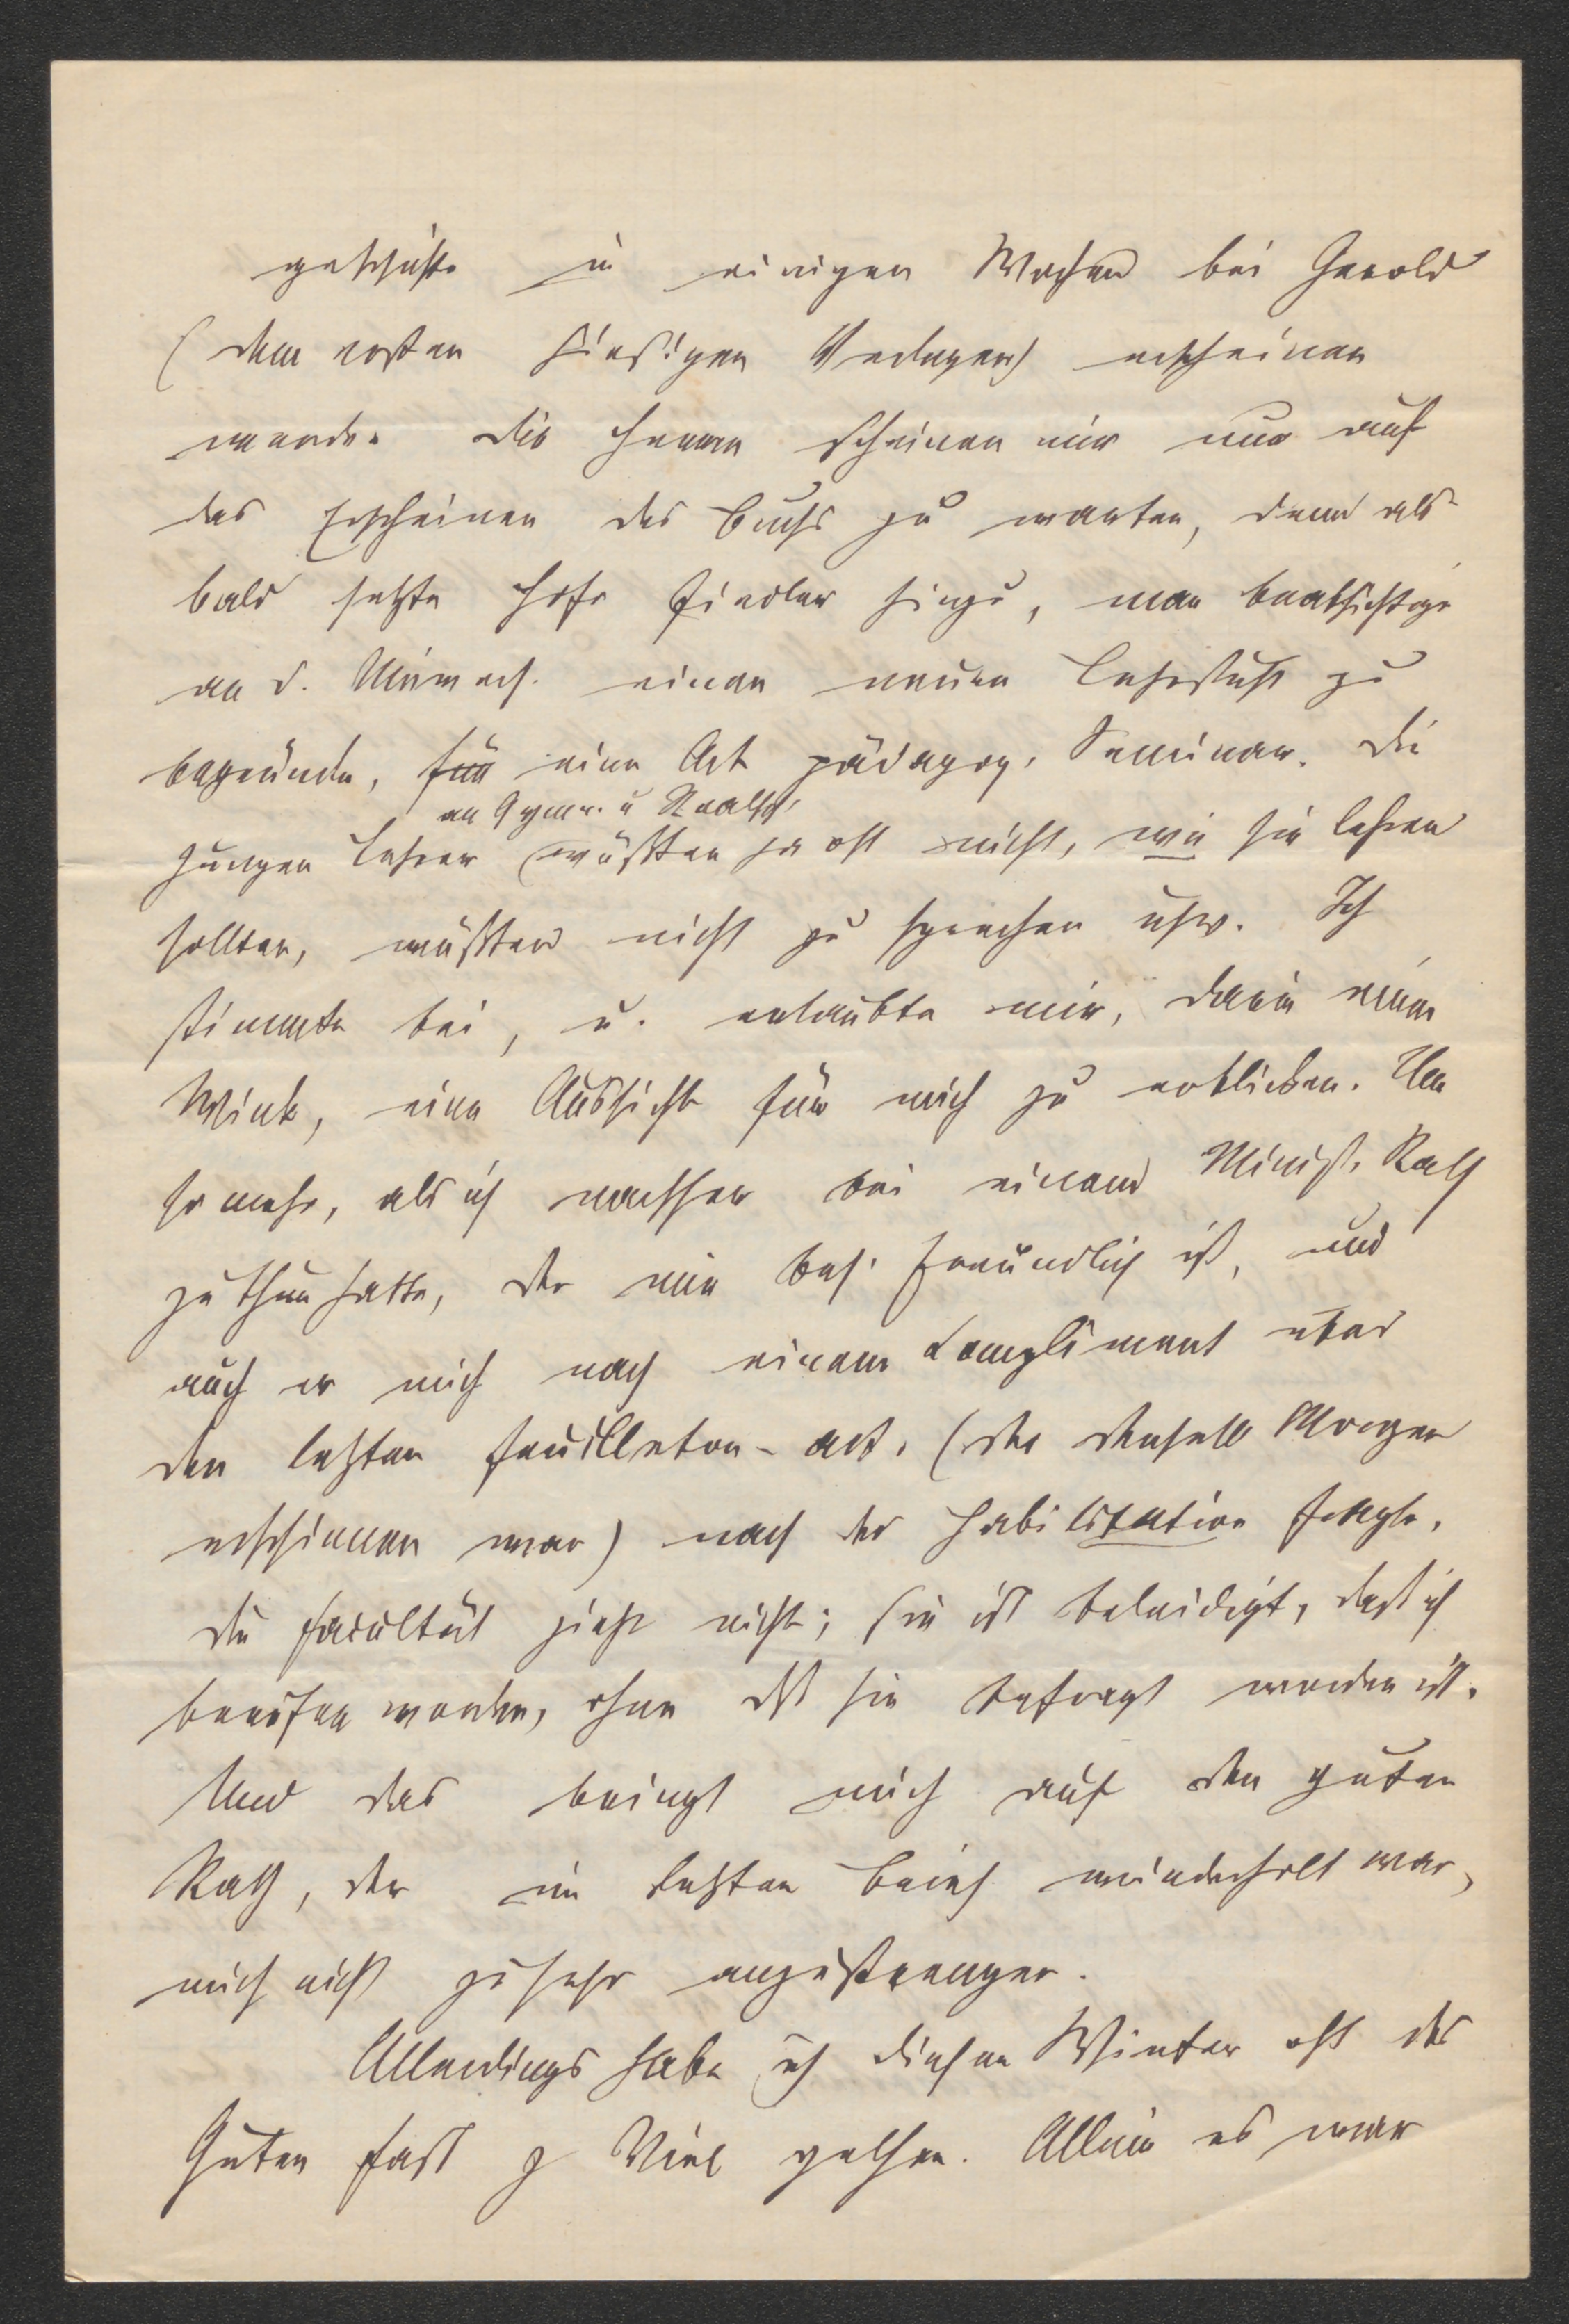 geschichte in einigen Wochen bei Gerold
(dem ersten hiesigen Verleger) erscheinen
werde. Die Herren scheinen mir nur auf
das Erscheinen des Buchs zu warten, denn als-
bald setzte Hofr Fiedler hinzu, man beabsichtige
an d. Univers. einen neuen Lehrstuhl zu
begründen, für eine Art pädagog. Seminar. Die
an Gymn. u Realsch.
jungen Lehrer wüßten ja oft nicht, wie sie lehren
sollten, wüßten nicht zu sprechen usw. Ich
stimmte bei, u. erlaubte mir, darin einen
Wink, eine Aussicht für mich zu erblicken. Um
so mehr, als ich nachher bei einem Minist. Rath
zu thun hatte, der mir bes. freundlich ist, und
auch er mich nach einem Compliment über
den letzten Feuilleton-Art. (der denselb Morgen
erschienen war) nach der Habilitation fragte.
Die Facultät zieht nicht; sie ist beleidigt, daß ich
berufen worden, ohne dß sie befragt worden ist.
Und das bringt mich auf den guten
Rath, der im letzten Brief wiederholt war,
mich nicht zu sehr anzustrengen.
Allerdings habe ich diesen Winter oft des
Guten fast z Viel gethan. Allein es war